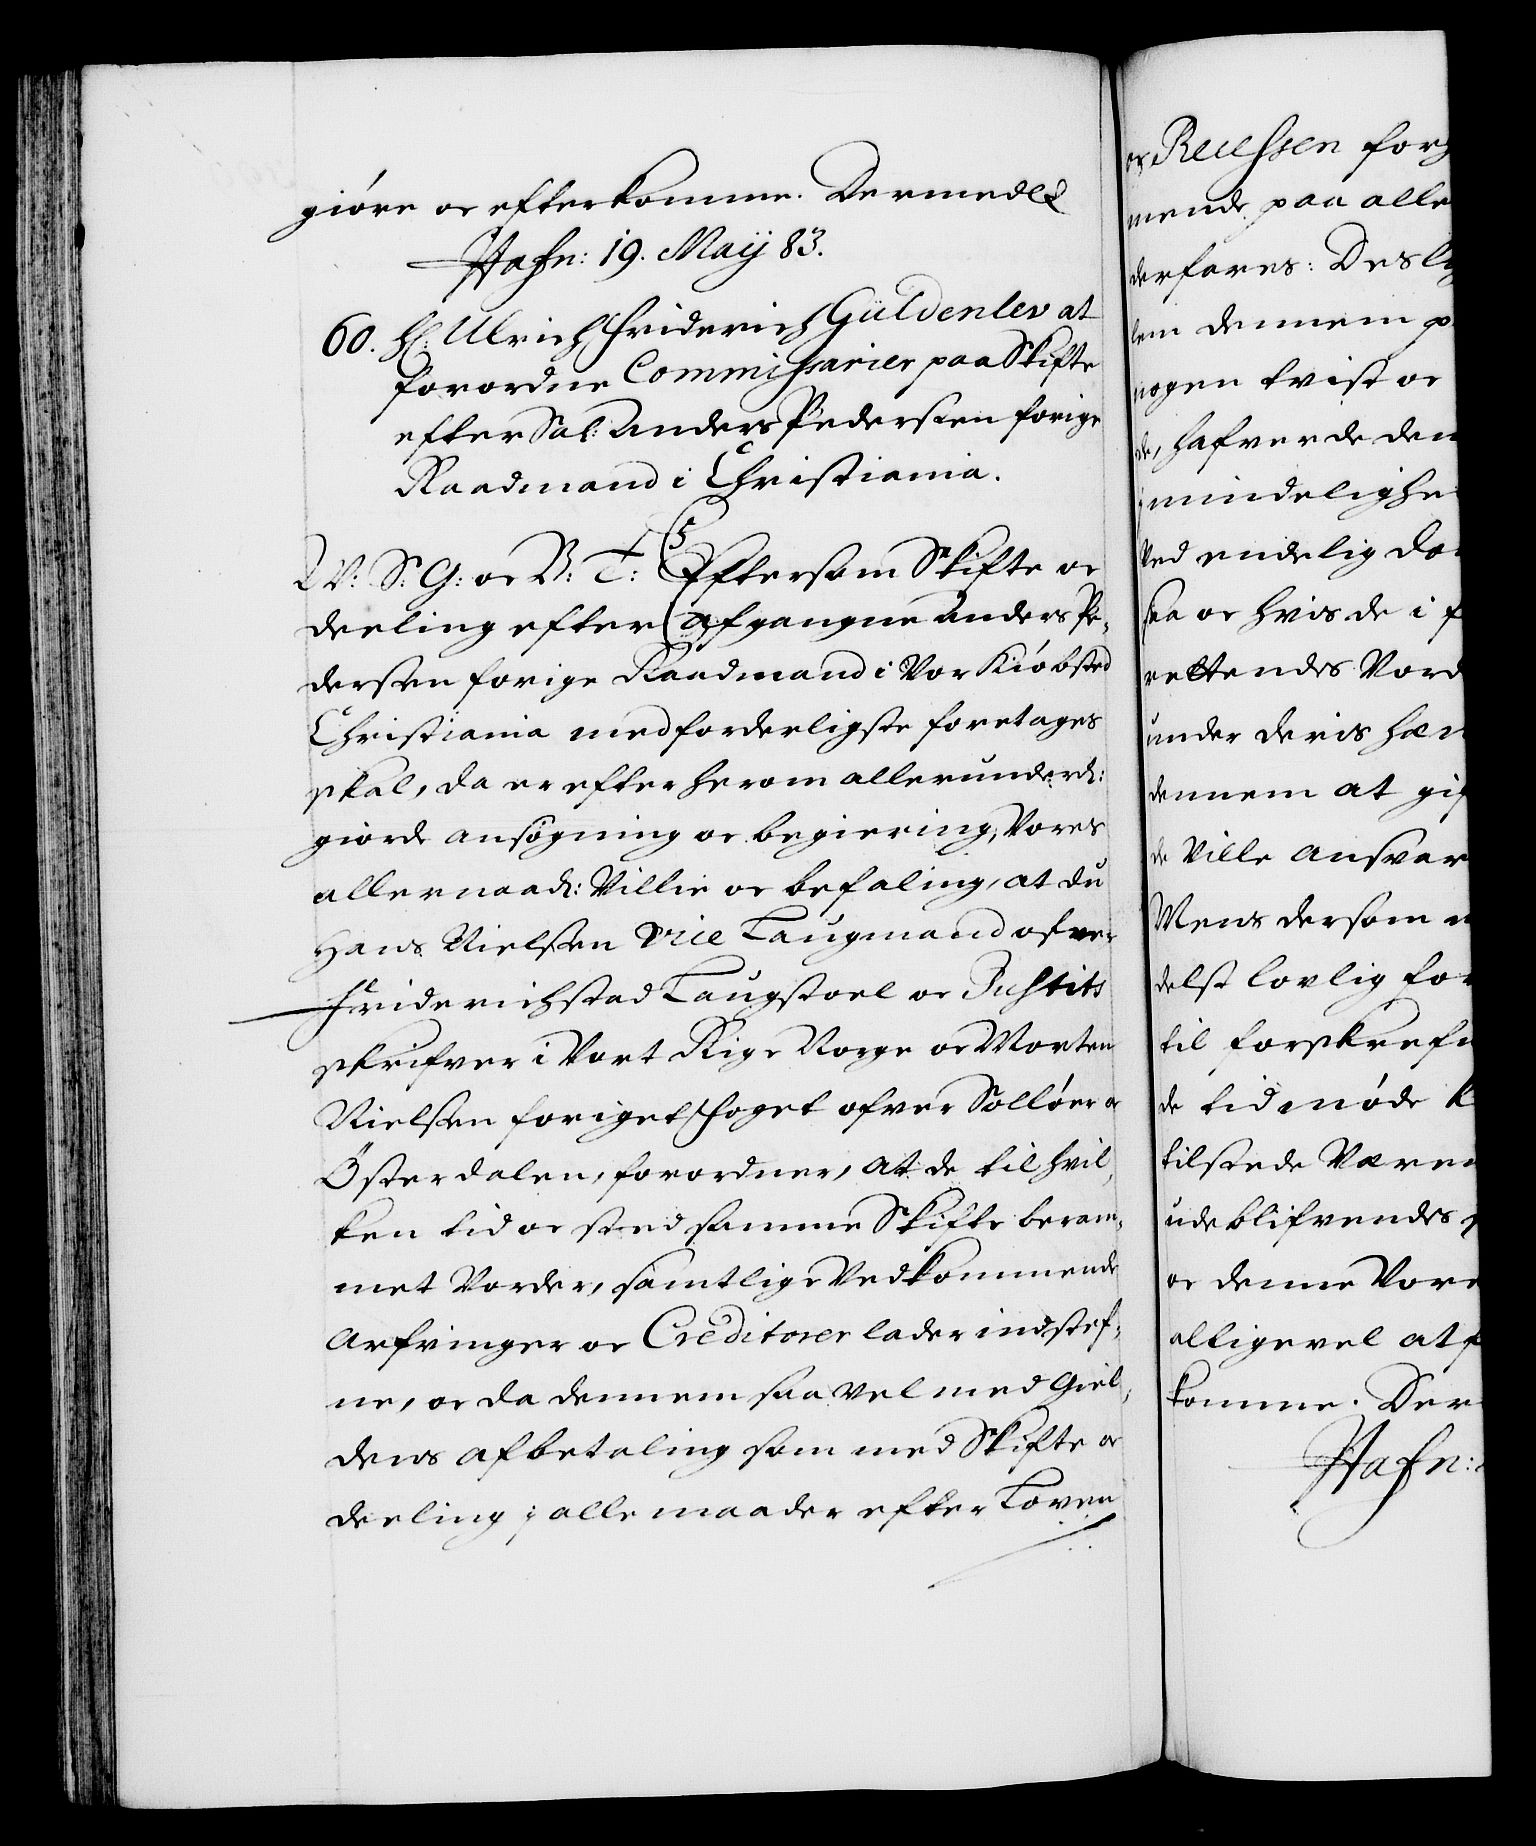 giöre oc efterkomme. Dermed etc
Hafn: 19. Maÿ 83.
60. H: Ulrich Friderich Güldenlev at
forordne Commissarier paa Skifte
efter Sal: Anders Pedersen forige
Raadmand i Christiania.
V: S: G: oc B: T: Eftersom Skifte oc
deeling efter afgangne Anders Pe,
dersen forige Raadmand i Vor Kiöbsted
Christiania medforderligste foretages
skal, da er efter herom allerunderd:
giorde ansögning oc begiering, Vores
allernaad: Villie oc befaling, at du
Hans Nielsen Vice Laugmand ofver
Friderichstad Laugstoel oc Justits
skrifver i Vort Rige Norge oc Morten
Nielsen foriget Foget ofver Sollöer oc
Österdalen, forordner, at de til hvil,
ken tid oc sted samme Skifte beram,
met Vorder, samtlige Vedkommende
Arfvinger oc Creditorer lader indstef,
ne, oc da dennem saa vel med Giel,
dens afbetaling som med Skifte oc
deeling i alle maader efter Loven
oc Recessen for
mende paa alle
derfares: Des
lem dennem p
nogen tvist oc
de, hafver de den
i mindelighe
Ved endelig do
saa oc hvis de i f
rettendes Vord
under deris hæn
dennem at gif
de Ville ansvar
Mens dersom
delst lovlig for
til forskrefn
de tid möde k
tilstede Væren
udeblifvendes
oc denne Vore
alligevel at f
komme. Der
Hafn: